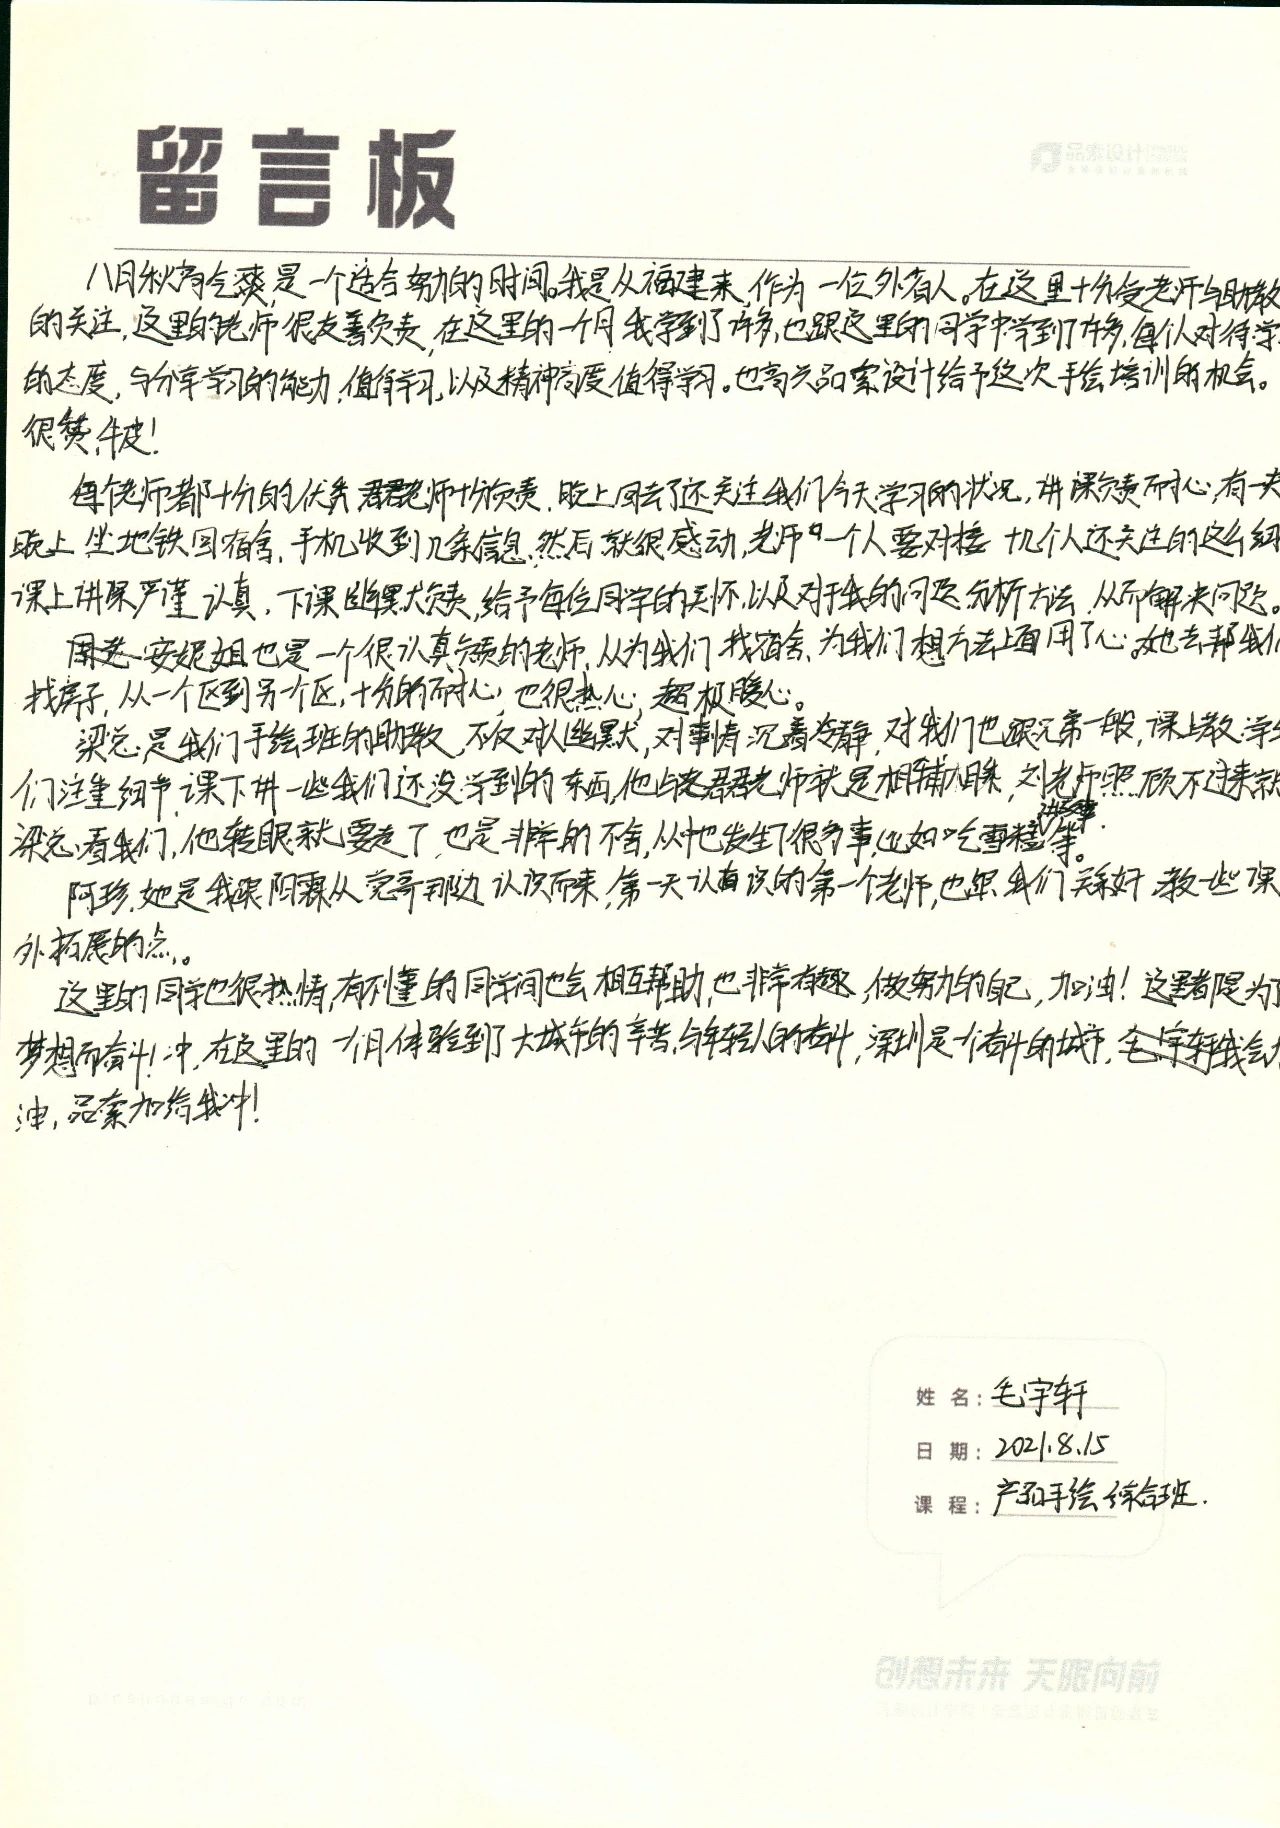 留言板
八月秋高气爽,是一个适合努力的时间。我是从福建来,作为一位外省人。在这里十分受老师与助教
的关注,这里的老师很友善负责,在这里的一个月我学到了许多,也跟这里的同学中学到了许多,每个人对待学
的态度,与分享学习的能力,值得学习,以及精神高度值得学习。也高兴品索设计给予这次手绘培训的机会。
很赞,牛皮!
每个老师都十分的优秀 君君老师十分负责,晚上回去了还关注我们今天学习的状况,讲课负责耐心,有一天
晚上坐地铁回宿舍,手机收到几条信息,然后就很感动,老师一个人要对接十几个人还关注的这么细
课上讲课严谨认真,下课幽默负责,给予每位同学的关怀,以及对于我的问题分析方法,从而解决问题。
安妮姐也是一个很认真负责的老师,从为我们找宿舍,为我们想方法上面用了心。她去帮我们
找房子,从一个区到另一个区,十分的耐心,也很热心,超极暖心。
梁总是我们手绘班的助教,不仅对人幽默,对事情沉着冷静,对我们也跟兄弟一般,课上教学生
们注重细节,课下讲一些我们还没学到的东西,他与君君老师就是相辅相成,刘老师照顾不过来就
梁总看我们,他转眼就要走了,也是非常的不舍,从中也发生了很多事,比如吃雪糕等。
阿珍,她是我跟阳霖从党哥那边认识而来,第一天认真说的第一个老师,也跟我们关系好 教一些课
外拓展的点。
这里的同学也很热情,有不懂的同学间也会相互帮助,也非常有趣,做努力的自己,加油!这里都是为了
梦想而奋斗!冲,在这里的一个月体验到了大城市的辛苦与年轻人的奋斗,深圳是一个奋斗的城市,毛宇轩我会加
油,品索加给我冲!
姓 名: 毛宇轩
日 期: 2021.8.15
课 程: 产品手绘综合班.